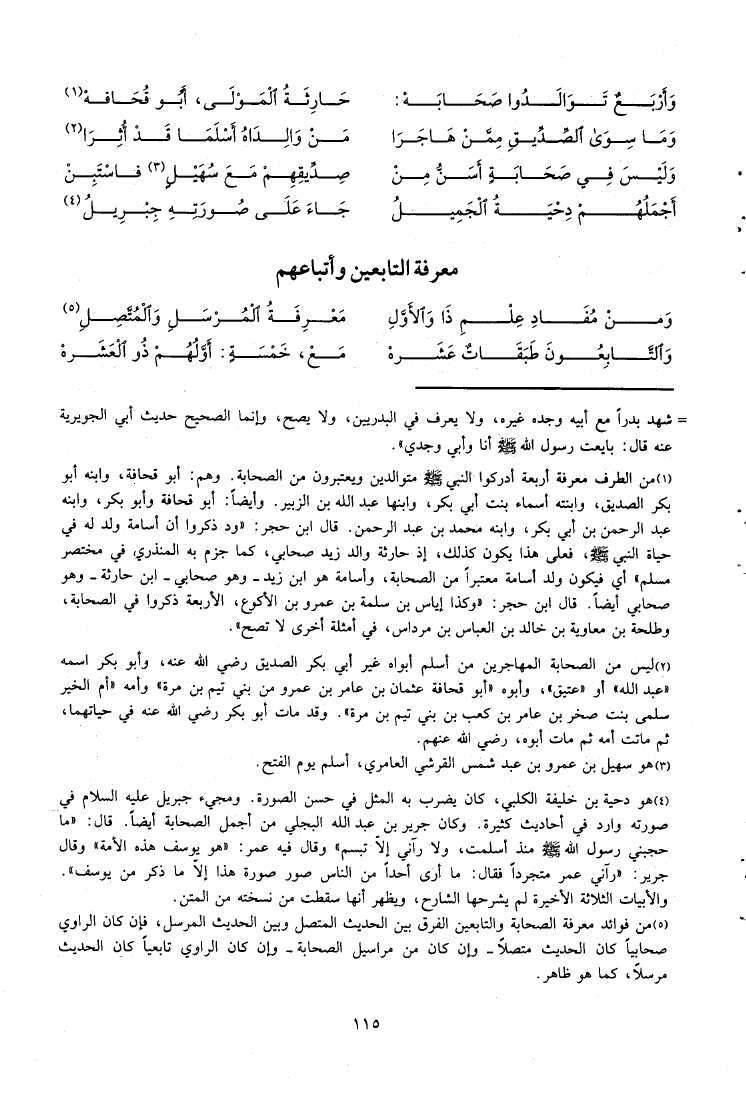 وَأَرْبَعٌ تَوَالَدُوا صَحَابَهْ: حَارِثَةُ الْمَوْلَى، أَبُو قُحَافَهْ(١)
وَمَا سِوَى الصِّدِّيقِ مِمَّنْ هَاجَرَا مَنْ وَالِدَاهُ أَسْلَمَا قَدْ أُثِرَا(٢)
وَلَيْسَ فِي صَحَابَةٍ أَسَنُّ مِنْ صِدِّيقِهِمْ مَعَ سُهَيْلٍ(٣) فَاسْتَبِنْ
أَجْمَلُهُمْ دِحْيَةُ الْجَمِيلُ جَاءَ عَلَى صُورَتِهِ جِبْرِيلُ(٤)
معرفة التابعين وأتباعهم
وَمِنْ مُفَادِ عِلْمِ ذَا وَالأَوَّلِ مَعْرِفَةُ الْمُرْسَلِ وَالْمُتَّصِلِ(٥)
وَالتَّابِعُونَ طَبَقَاتٌ عَشَرَهْ مَعْ، خَمْسَةٍ: أَوَّلُهُمْ ذُو الْعَشَرَهْ
= شهد بدراً مع أبيه وجده غيره، ولا يعرف في البدريين، ولا يصح، وإنما الصحيح حديث أبي الجويرية
عنه قال: بايعت رسول الله ﷺ أنا وأبي وجدي».
(١)من الطرف معرفة أربعة أدركوا النبي ﷺ متوالدين ويعتبرون من الصحابة. وهم: أبو قحافة، وابنه أبو
بكر الصديق، وابنته أسماء بنت أبي بكر، وابنها عبد الله بن الزبير. وأيضاً: أبو قحافة وأبو بكر، وابنه
عبد الرحمن بن أبي بكر، وابنه محمد بن عبد الرحمن. قال ابن حجر: «ود ذكروا أن أسامة ولد له في
حياة النبي ﷺ، فعلى هذا يكون كذلك، إذ حارثة والد زيد صحابي، كما جزم به المنذري في مختصر
مسلم» أي فيكون ولد أسامة معتبراً من الصحابة، وأسامة هو ابن زيد ـ وهو صحابي ـ ابن حارثة ـ وهو
صحابي أيضاً. قال ابن حجر: «وكذا إياس بن سلمة بن عمرو بن الأكوع، الأربعة ذكروا في الصحابة،
وطلحة بن معاوية بن خالد بن العباس بن مرداس، في أمثلة أخرى لا تصح».
(٢)ليس من الصحابة المهاجرين من أسلم أبواه غير أبي بكر الصديق رضي الله عنه، وأبو بكر اسمه
«عبد الله» أو «عتيق»، وأبوه «أبو قحافة عثمان بن عامر بن عمرو من بني تيم بن مرة» وأمه «أم الخير
سلمى بنت صخر بن عامر بن كعب بن بني تيم بن مرة». وقد مات أبو بكر رضي الله عنه في حياتهما،
ثم ماتت أمه ثم مات أبوه، رضي الله عنهم.
(٣)هو سهيل بن عمرو بن عبد شمس القرشي العامري، أسلم يوم الفتح.
(٤)هو دحية بن خليفة الكلبي، كان يضرب به المثل في حسن الصورة. ومجيء جبريل عليه السلام في
صورته وارد في أحاديث كثيرة. وكان جرير بن عبد الله البجلي من أجمل الصحابة أيضاً. قال: «ما
حجبني رسول الله ﷺ منذ أسلمت، ولا رآني إلاّ تبسم» وقال فيه عمر: «هو يوسف هذه الأمة» وقال
جرير: «رآني عمر متجرداً فقال: ما أرى أحداً من الناس صور صورة هذا إلاّ ما ذكر من يوسف».
والأبيات الثلاثة الأخيرة لم يشرحها الشارح، ويظهر أنها سقطت من نسخته من المتن.
(٥)من فوائد معرفة الصحابة والتابعين الفرق بين الحديث المتصل وبين الحديث المرسل، فإن كان الراوي
صحابياً كان الحديث متصلاً ـ وإن كان من مراسيل الصحابة ـ وإن كان الراوي تابعياً كان الحديث
مرسلاً، كما هو ظاهر.
١١٥